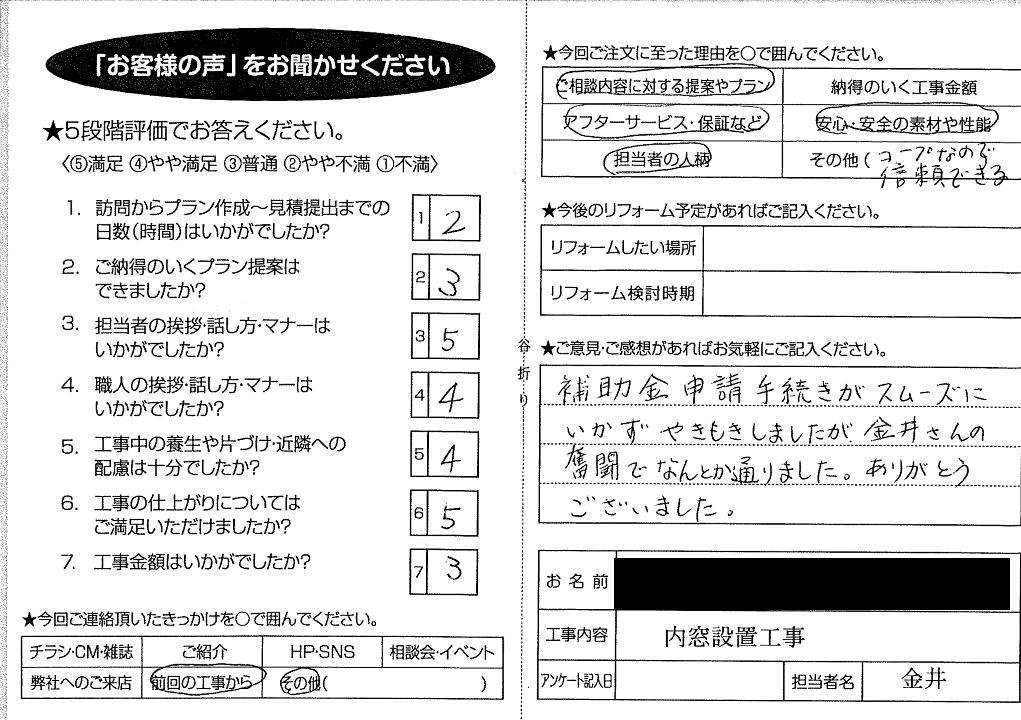 「お客様の声」をお聞かせください
★5段階評価でお答えください。
〈⑤満足 ④やや満足 ③普通 ②やや不満 ①不満〉
1. 訪問からプラン作成～見積提出までの
日数(時間)はいかがでしたか?
1 2
2. ご納得のいくプラン提案は
できましたか?
2 3
3. 担当者の挨拶・話し方・マナーは
いかがでしたか?
3 5
4. 職人の挨拶・話し方・マナーは
いかがでしたか?
4 4
5. 工事中の養生や片づけ・近隣への
配慮は十分でしたか?
5 4
6. 工事の仕上がりについては
ご満足いただけましたか?
6 5
7. 工事金額はいかがでしたか?
7 3
★今回ご連絡頂いたきっかけを○で囲んでください。
チラシ・CM・雑誌 ご紹介 HP・SNS 相談会・イベント
弊社へのご来店 前回の工事から その他( )
谷折り
★今回ご注文に至った理由を○で囲んでください。
ご相談内容に対する提案やプラン 納得のいく工事金額
アフターサービス・保証など 安心・安全の素材や性能
担当者の人柄 その他( コープなので
信頼できる
★今後のリフォーム予定があればご記入ください。
リフォームしたい場所
リフォーム検討時期
★ご意見・ご感想があればお気軽にご記入ください。
補助金申請手続きがスムーズに
いかずやきもきしましたが金井さんの
奮闘でなんとか通りました。ありがとう
ございました。
お名前
工事内容 内窓設置工事
アンケート記入日 担当者名 金井